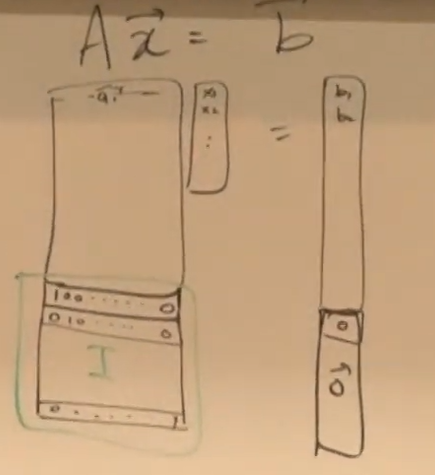 A x⃗ = b⃗
- a₁ᵀ -
x₁
x₂
:
=
b₁
b₂
1 0 0 ...... 0
0 1 0 ..... 0
I
0 ....... 1
0
0⃗